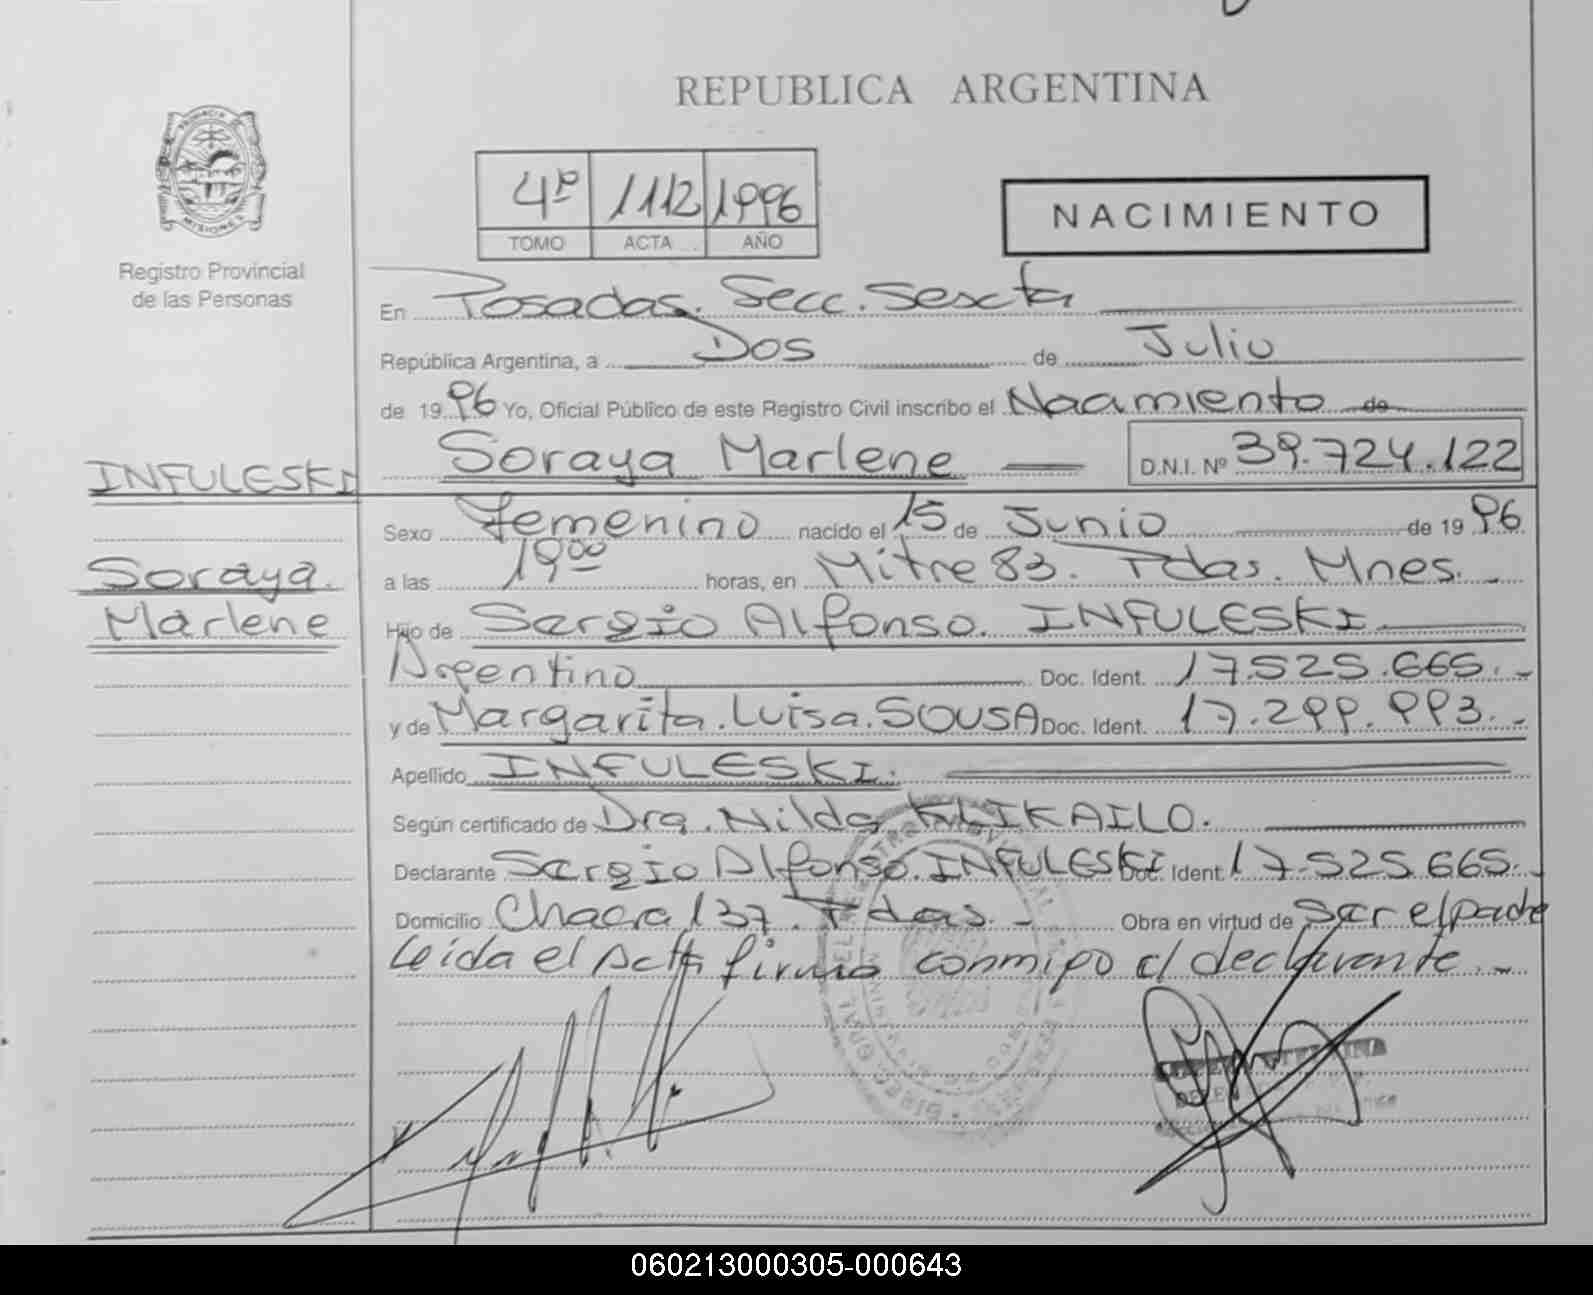 REPUBLICA ARGENTINA
PROVINCIA DE
MISIONES
Registro Provincial
de las Personas
4º 1112 1996
TOMO ACTA AÑO
NACIMIENTO
En Posadas. Secc. Sexta
República Argentina, a Dos de Julio
de 1996 Yo, Oficial Público de este Registro Civil inscribo el Nacimiento de
Soraya Marlene D.N.I. Nº 39.724.122
INFULESKI
Soraya
Marlene
Sexo Femenino nacido el 15 de Junio de 1996
a las 19ºº horas, en Mitre 83. Pdas. Mnes.
Hijo de Sergio Alfonso. INFULESKI
Argentino Doc. Ident. 17.525.665.
y de Margarita. Luisa. SOUSA Doc. Ident. 17.299.993.
Apellido INFULESKI.
Según certificado de Dra. Nilda KLIKAILO.
Declarante Sergio Alfonso. INFULESKI Doc. Ident 17.525.665.
Domicilio Chacra 137. Pdas. Obra en virtud de ser el padre
Leida el Acta firma conmigo el declarante.
060213000305-000643